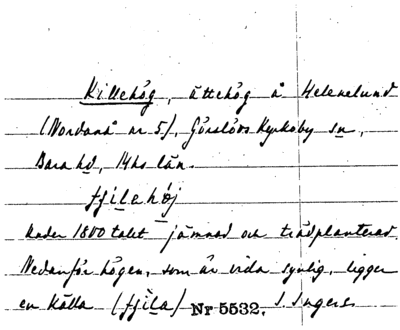 Killehög, ättehög å Helenelund
(Nordanå nr 5), Görslövs Kyrkoby sn,
Bara hd, Mhs län.
fjilehöj
Under 1800 talet jämnad och trädplanterad
Nedanför högen, som är vida synlig, ligger
en källa (fjila) Nr 5532. S. Ingers